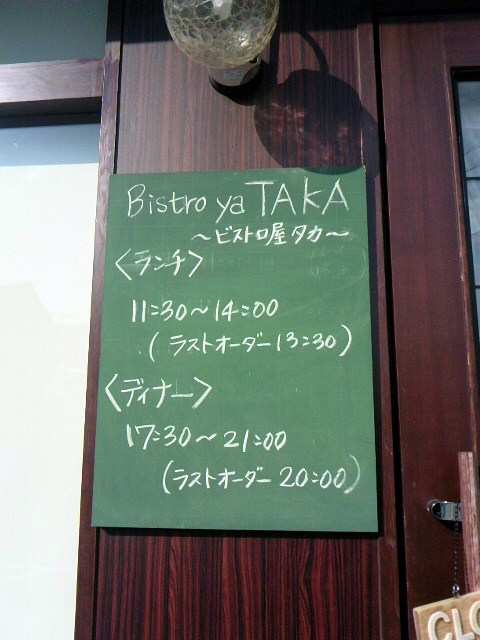 Bistro ya TAKA
～ビストロ屋タカ～
〈ランチ〉
11:30～14:00
(ラストオーダー13:30)
〈ディナー〉
17:30～21:00
(ラストオーダー 20:00)
CLO